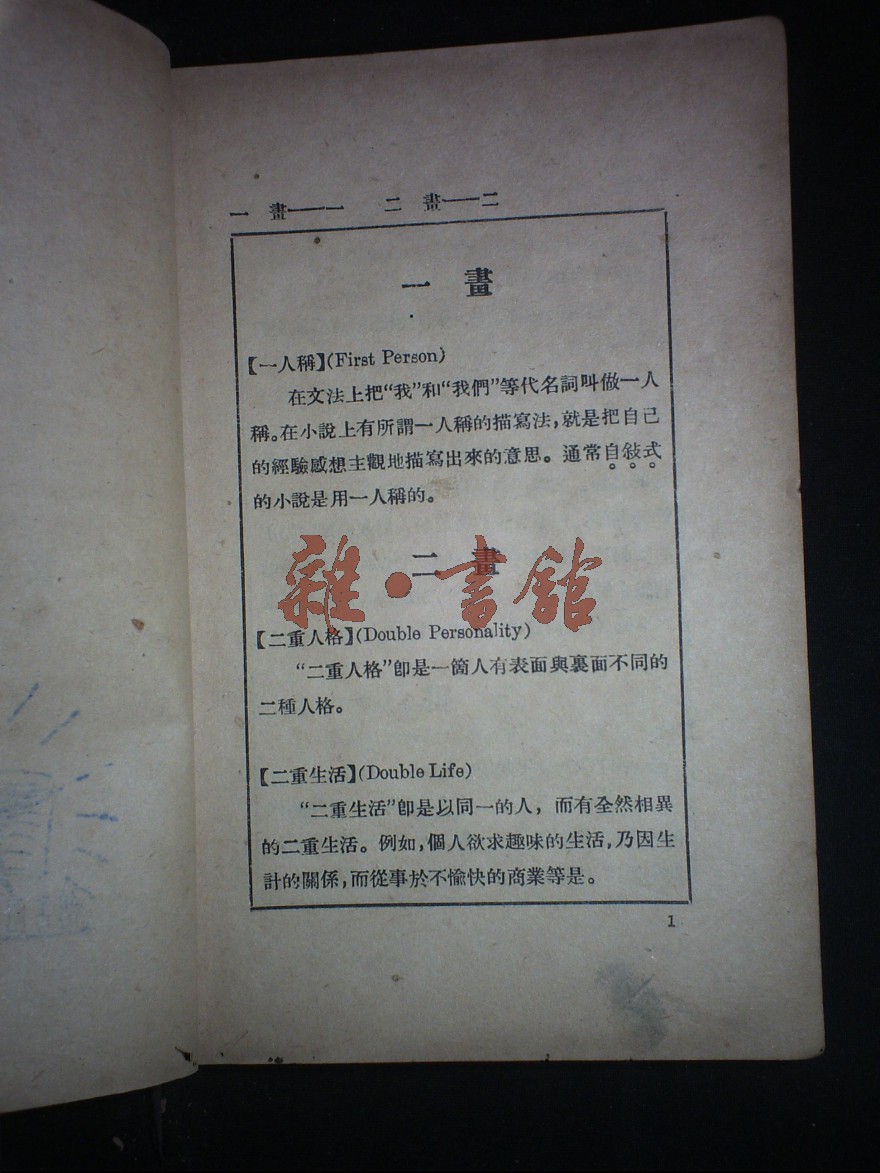 一　畫——一　二　畫——二
一　畫
【一人稱】(First Person)
在文法上把“我”和“我們”等代名詞叫做一人
稱。在小說上有所謂一人稱的描寫法，就是把自己
的經驗感想主觀地描寫出來的意思。通常自敍式
的小說是用一人稱的。
二　畫
雜·書館
【二重人格】(Double Personality)
“二重人格”卽是一箇人有表面與裏面不同的
二種人格。
【二重生活】(Double Life)
“二重生活”卽是以同一的人，而有全然相異
的二重生活。例如，個人欲求趣味的生活，乃因生
計的關係，而從事於不愉快的商業等是。
1